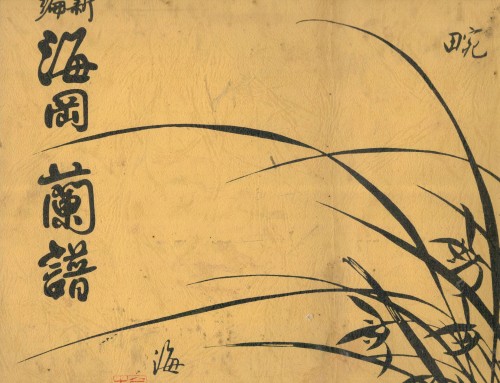 新編
海岡
蘭譜
畹
海